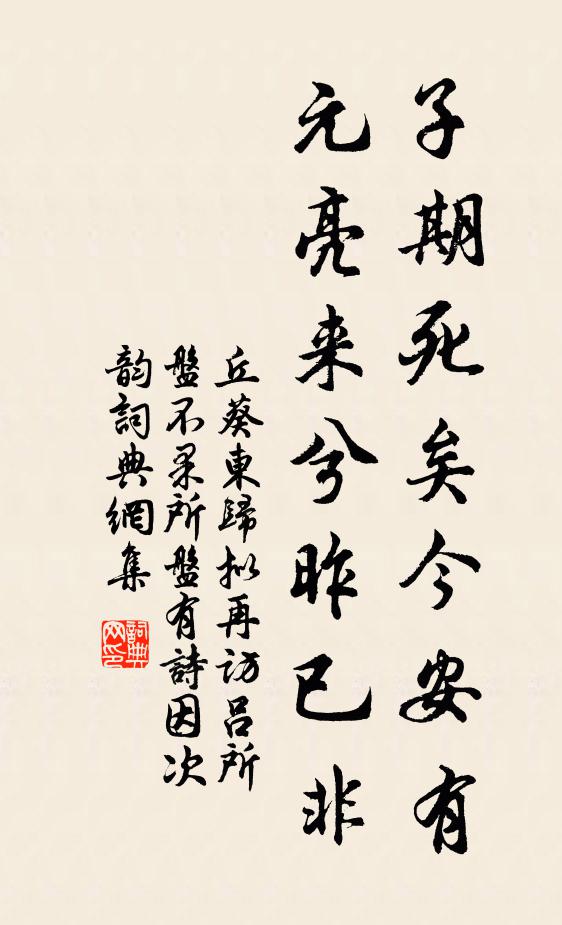 子期死矣今安有
元亮来兮昨已非
丘葵東歸拟再访呂所
盤不果所盤有詩因次
韵詞典網集
詞典
网印